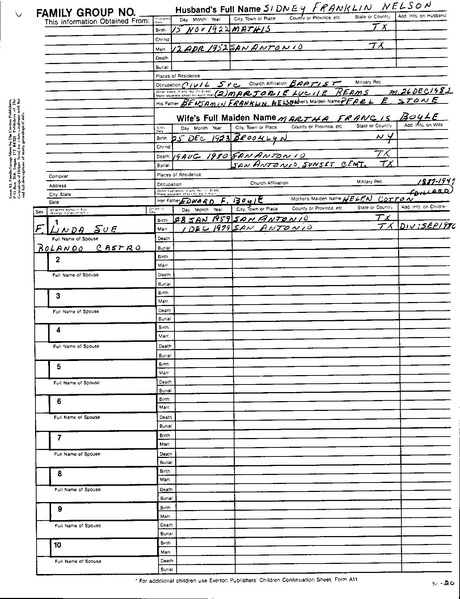 FAMILY GROUP NO.
This Information Obtained From:
Husband's Full Name SIDNEY FRANKLIN NELSON
Day Month Year City, Town or Place County or Province, etc. State or Country Add. Info. on Husband
Birth 15 NOV 1922 MATHIS TX
Chr'nd
Marr. 12 APR 1952 SAN ANTONIO TX
Death
Burial
Places of Residence
Occupation CIVIL SVC Church Affiliation BAPTIST Military Rec.
(2) MARJORIE LUCILE REAMS m. 26 DEC 1982
His Father BENJAMIN FRANKLIN NELSON Mother's Maiden Name PEARL E. STONE
Wife's Full Maiden Name MARTHA FRANCIS BOYLE
Day Month Year City, Town or Place County or Province, etc. State or Country Add. Info. on Wife
Birth 25 DEC 1923 BROOKLYN NY
Chr'nd
Death 19 AUG 1980 SAN ANTONIO TX
Burial SAN ANTONIO, SUNSET CEMT. TX
Compiler
Address
City, State
Date
Places of Residence
Occupation Church Affiliation Military Rec.
Her Father EDWARD F. BOYLE Mother's Maiden Name HELEN COTTON
Sex
Day Month Year City, Town or Place County or Province, etc. State or Country Add. Info. on Children
1
F. LINDA SUE
Full Name of Spouse
ROLANDO CASTRO
Birth 28 JAN 1959 SAN ANTONIO TX
Marr. 1 DEC 1979 SAN ANTONIO TX
Death
Burial
2
Full Name of Spouse
Birth
Marr.
Death
Burial
3
Full Name of Spouse
Birth
Marr.
Death
Burial
4
Full Name of Spouse
Birth
Marr.
Death
Burial
5
Full Name of Spouse
Birth
Marr.
Death
Burial
6
Full Name of Spouse
Birth
Marr.
Death
Burial
7
Full Name of Spouse
Birth
Marr.
Death
Burial
8
Full Name of Spouse
Birth
Marr.
Death
Burial
9
Full Name of Spouse
Birth
Marr.
Death
Burial
10
Full Name of Spouse
Birth
Marr.
Death
Burial
* For additional children use Everton Publishers' Children Continuation Sheet, Form A11
N-20